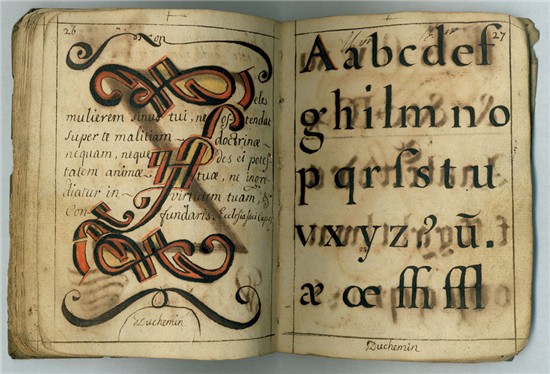 26
on
Zeles
mulierem sinus tui, ne ostendat
super te malitiam doctrinæ
nequam, neque des ei potes-
tatem animæ tuæ, ne ingre
diatur in virtutem tuam, &
Con- fundaris.
Duchemin
27
A a b c d e f
g h i l m n o
p q r ſ s t u
v x y z ꝰ ū.
æ œ
Duchemin